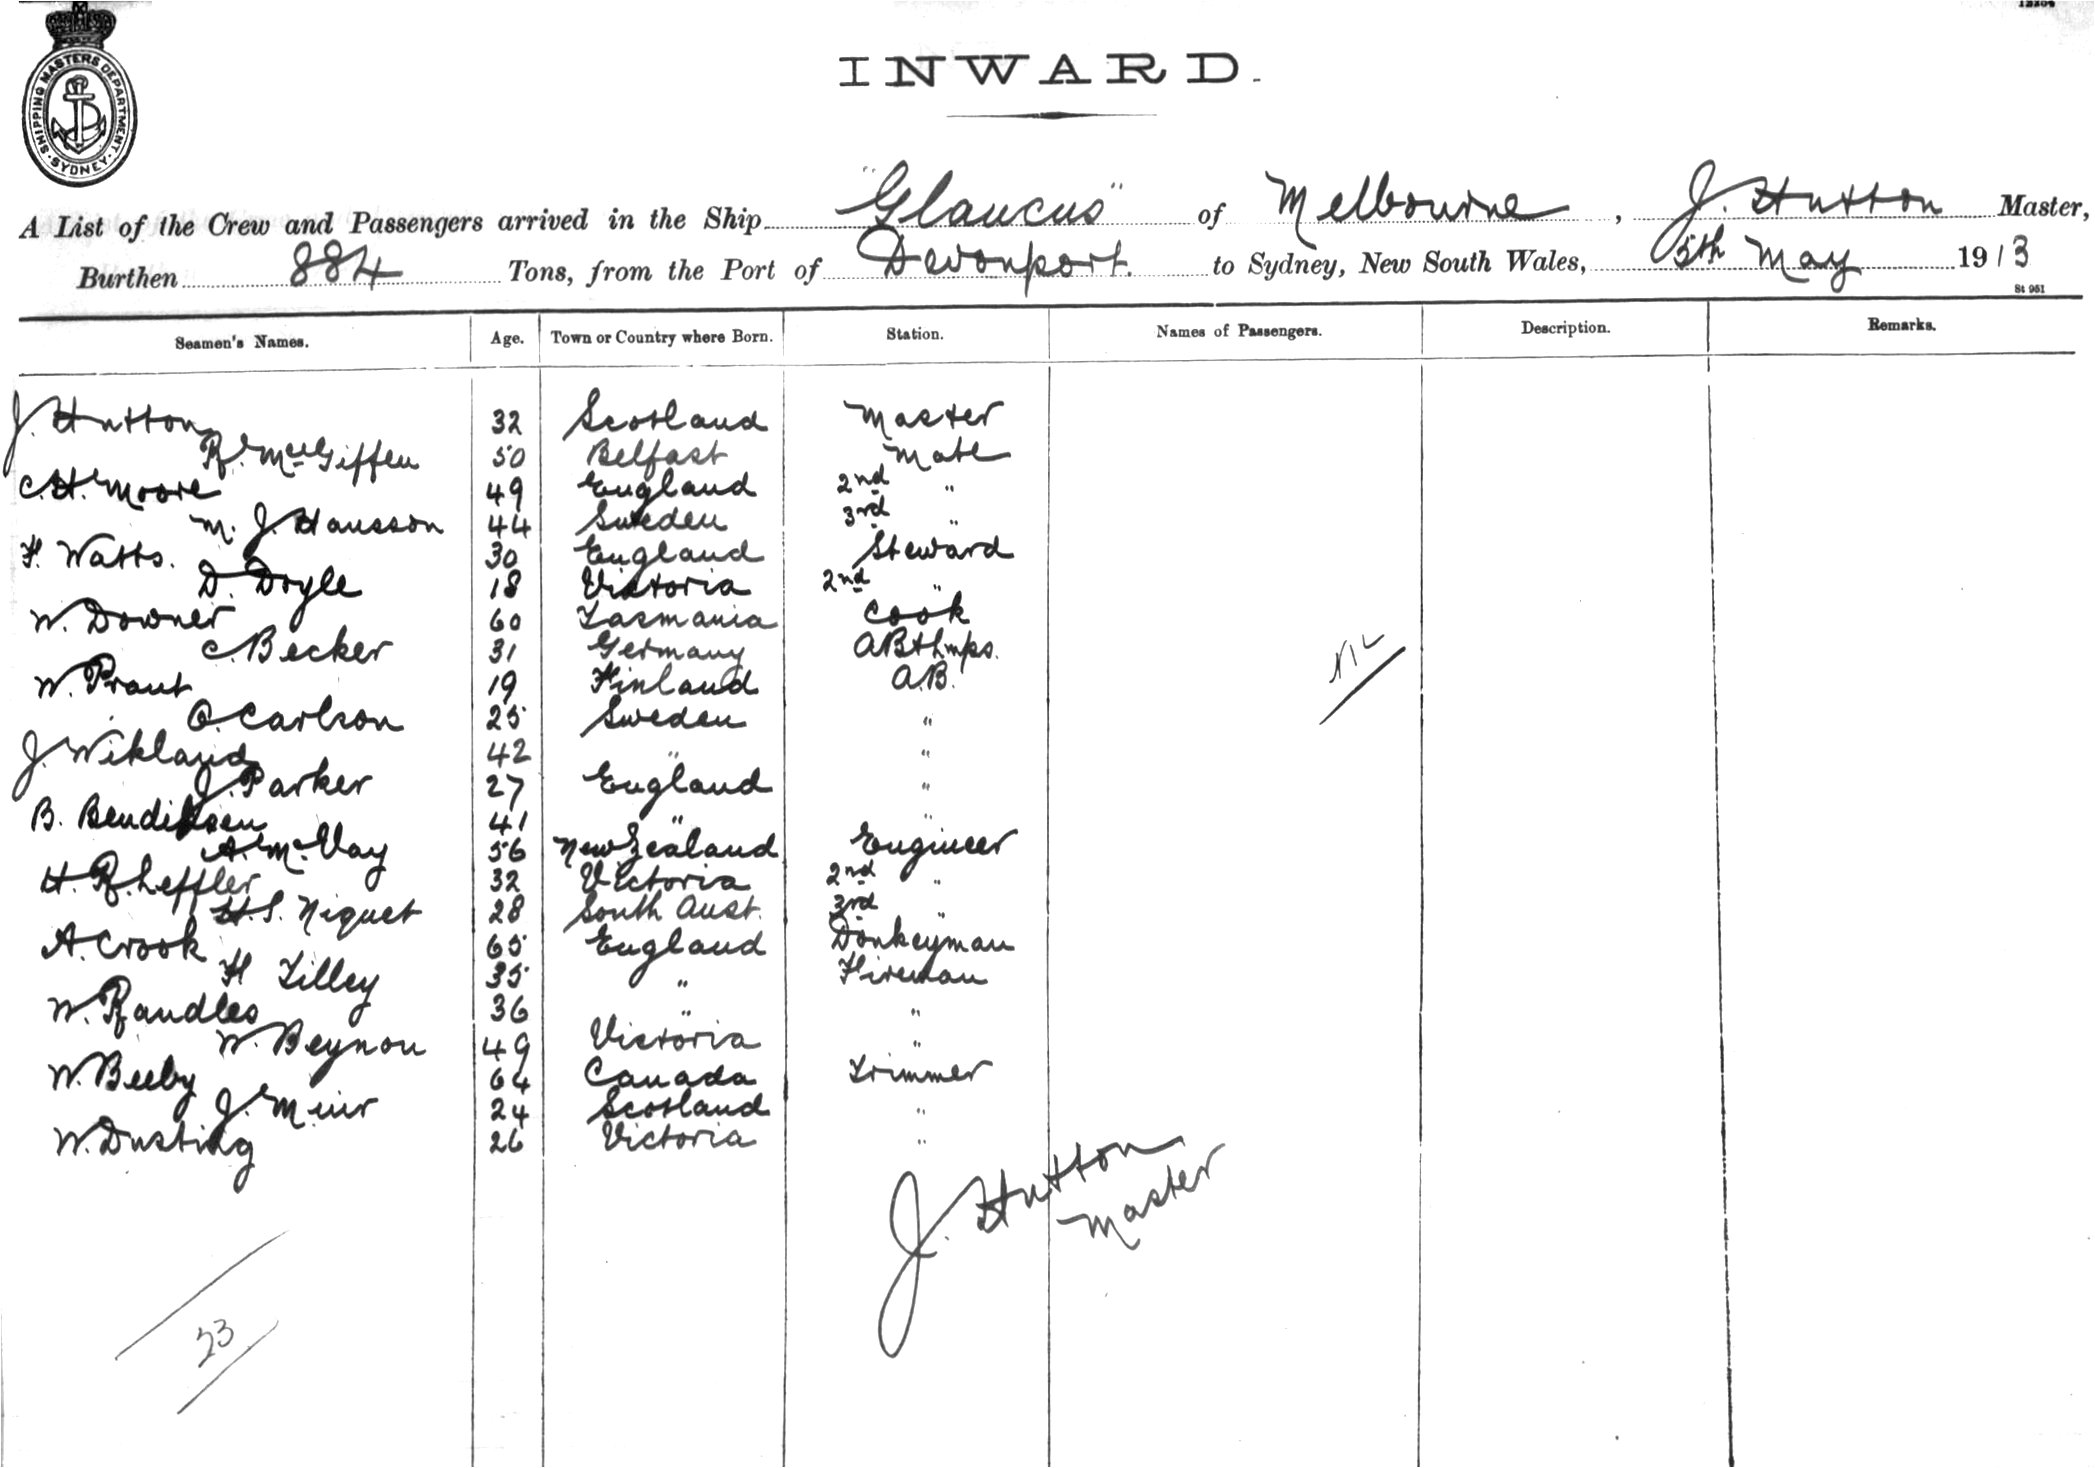 SHIPPING MASTERS DEPARTMENT
SYDNEY
INWARD.
A List of the Crew and Passengers arrived in the Ship "Glaucus" of Melbourne, J. Hutton Master,
Burthen 884 Tons, from the Port of Devonport. to Sydney, New South Wales, 5th May 1913
St 951
Seamen's Names. Age. Town or Country where Born. Station. Names of Passengers. Description. Remarks.
J. Hutton 32 Scotland Master
R. McGiffen 50 Belfast Mate
C.H. Moore 49 England 2nd "
M. J. Hansson 44 Sweden 3rd "
F. Watts. 30 England Steward
D. Doyle 18 Victoria 2nd "
W. Downer 60 Tasmania Cook
C. Becker 31 Germany AB & Lmps.
W. Prant 19 Finland A.B.
O. Carlson 25 Sweden "
NIL
J. Wikland 42 " "
J. Parker 27 England "
B. Bendiksen 41 " "
A. McVay 56 New Zealand Engineer
H. R. Leffler 32 Victoria 2nd "
H.S. Niquet 28 South Aust. 3rd "
A. Crook 65 England Donkeyman
H Tilley 35 " Fireman
W. Randles 36 " "
W. Beynon 49 Victoria "
W. Beeby 64 Canada Trimmer
J. Muir 24 Scotland "
W. Dusting 26 Victoria "
J. Hutton
Master
23